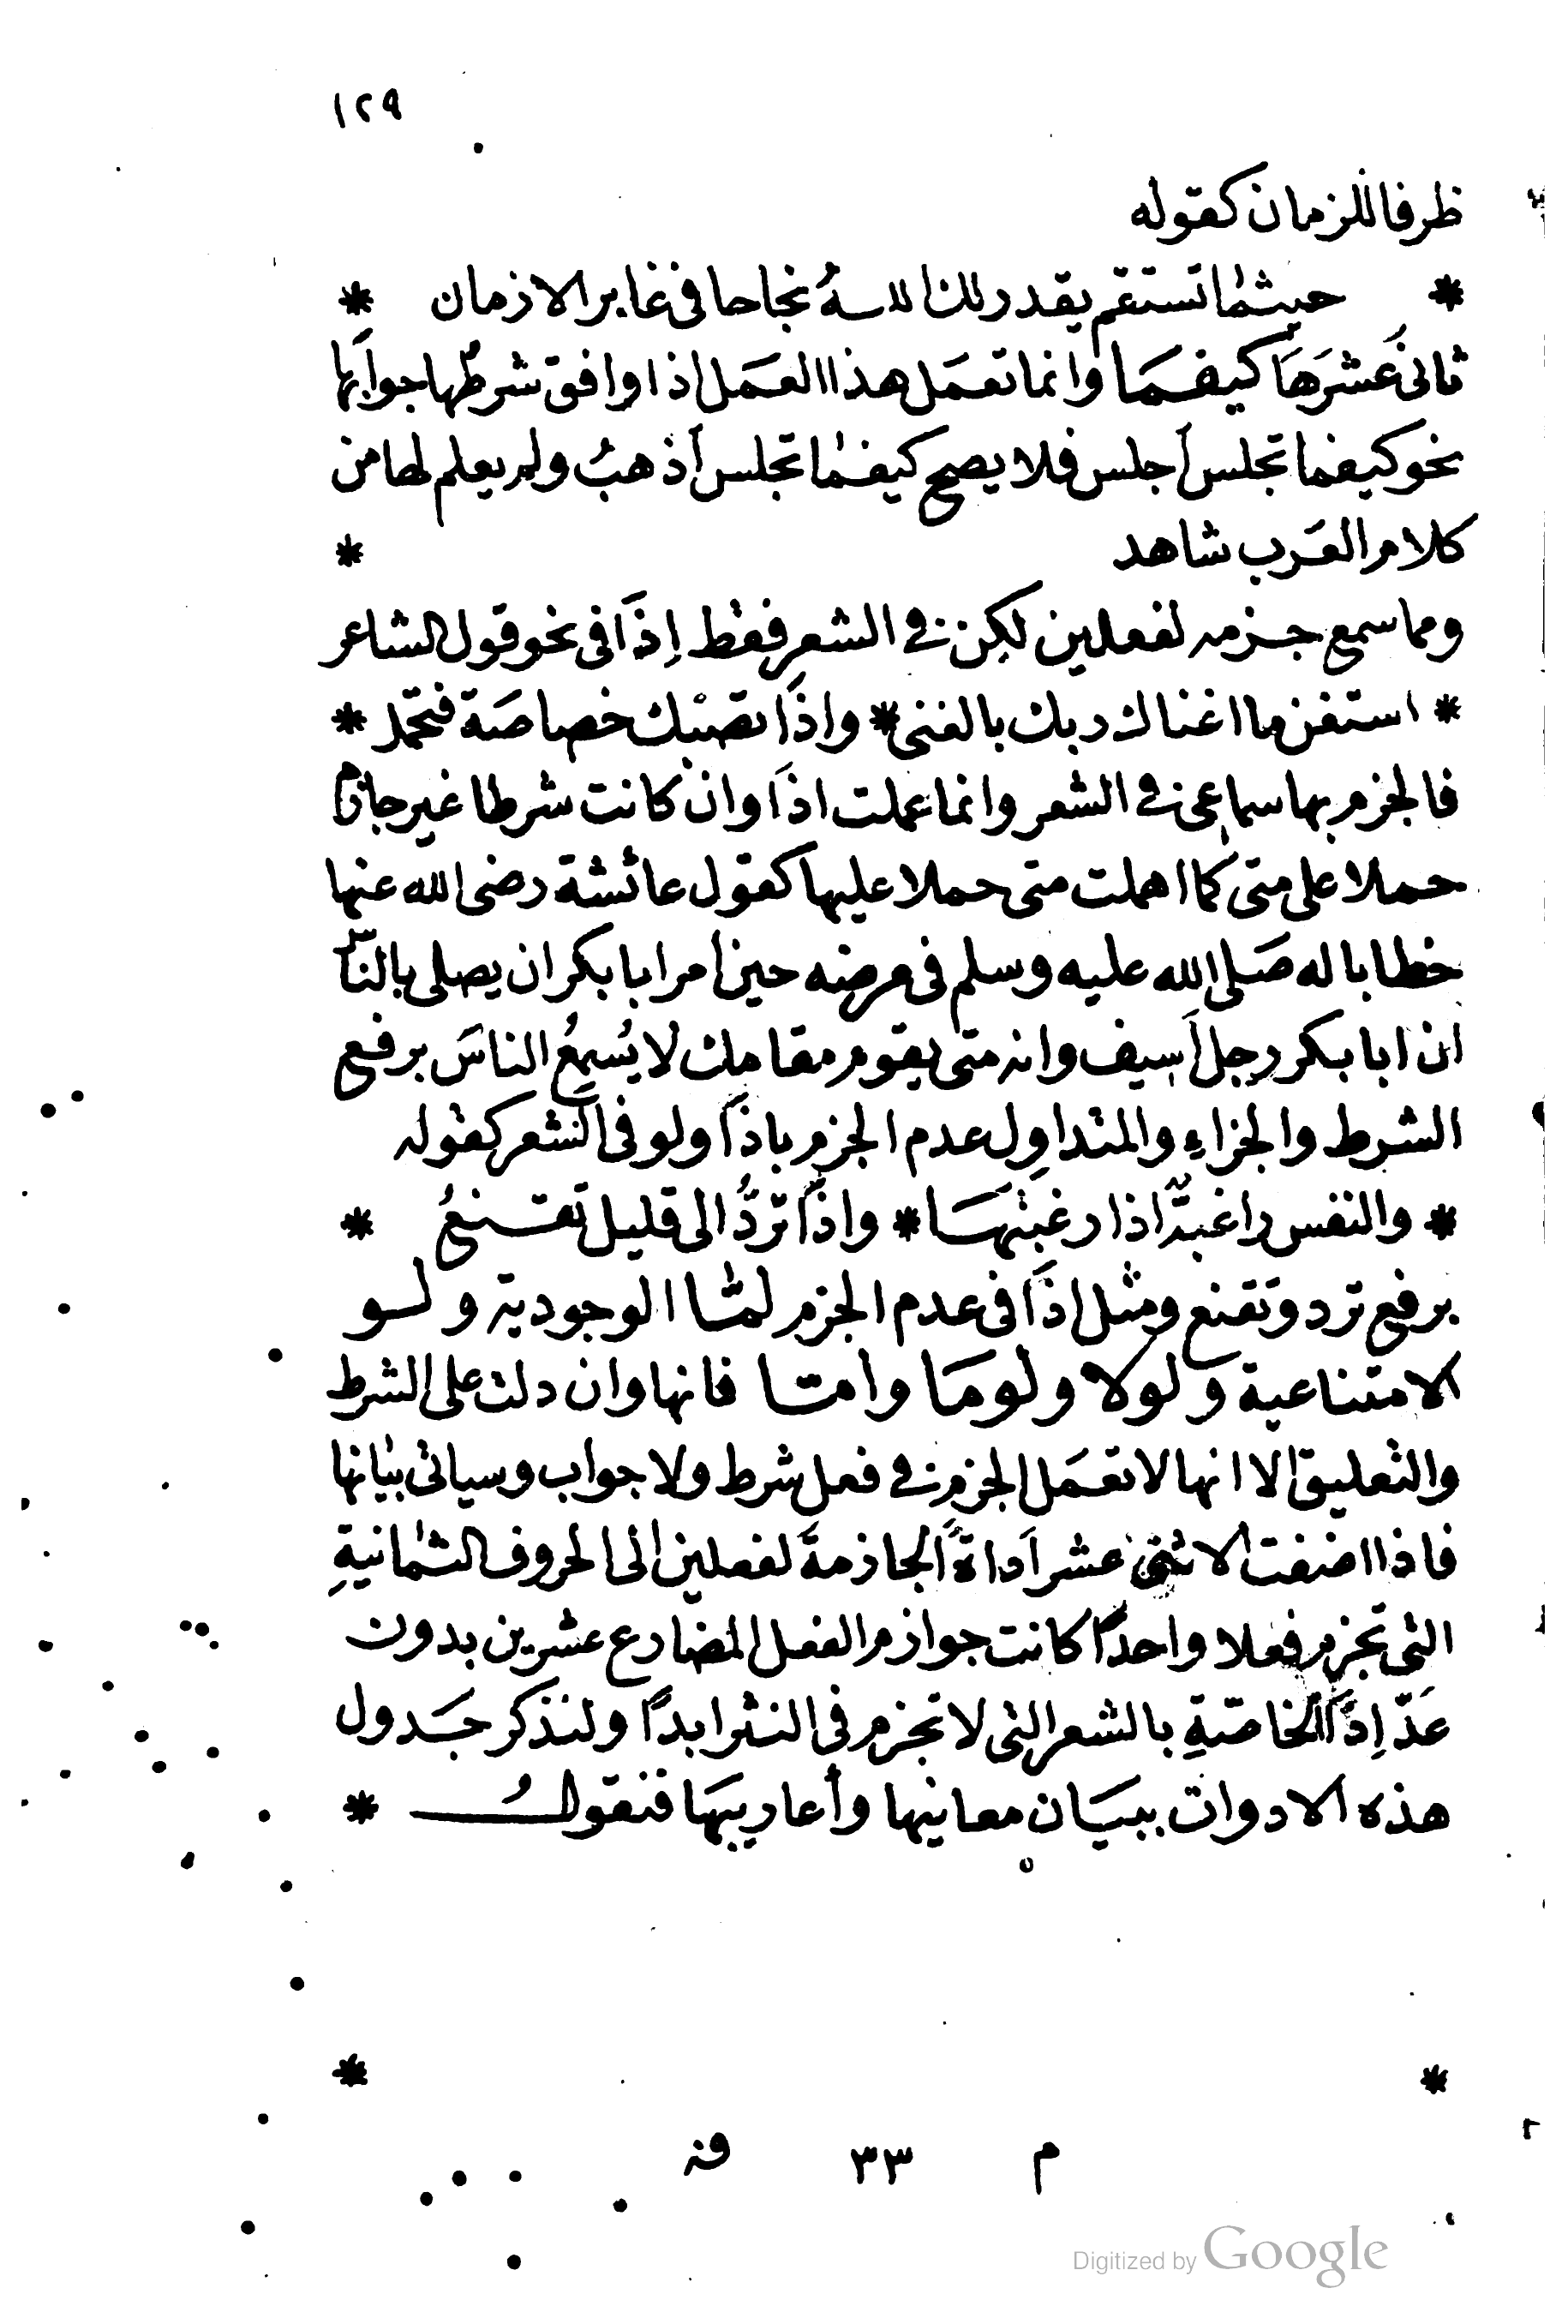 ١٢٩
ظرفا للزمان كقوله
* حيثما تستقم يقدر لك اللـه نجاحا فى غابر الازمان *
ثانى عَشَرَهَا كيفمَا وانما تعمَل هذا العمَل اذا وافق شرطُها جوابَها
نحو كيفما تجلس أجلس فلا يصح كيفما تجلس أذهبُ ولم يعلم لها من
كلام العَرب شاهد *
ومما سمع جزمه لفعلين لكن فى الشعر فقط إذَا فى نحو قول الشاعر
* استغن ما اغناك ربك بالغنى * واذَا تصبْك خصاصَة فتجمل *
فالجزم بها سماعى فى الشعر وانما عملت اذَا وان كانت شرطا غير جازم
حملا على متى كما اهملت متى حملا عليها كقول عائشة رضى الله عنها
خطابا له صَلى الله عليه وسلم فى مرضه حين امر ابا بكر ان يصلى بالناس
ان ابا بكر رجل أسيف وانه متى يقوم مقامك لا يُسمِعُ الناسَ برفع
الشرط والجزاءِ والمتداوِل عدم الجزم باذَا ولو فى الشعر كقوله
* والنفس راغبةٌ اذا رغبتهَا * واذَا تُردُّ الى قليل تقنعُ *
برفع ترد وتقنع ومثل اذَا فى عدم الجزم لمّا الوجودية ولو
الامتناعية ولولا ولومَا وامّا فانها وان دلت على الشرط
والتعليق الا انها لا تعمَل الجزم فى فعل شرط ولا جواب وسياتى بيانها
فاذا اضفت الاثنى عشر أداةً الجازمةَ لفعلين الى الحروف الثمانيةِ
التى تجزم فعلا واحدًا كانت جوازم الفعل المضارع عشرين بدون
عَدّ إذَا الخاصّةِ بالشعر التى لا تجزم فى النثر ابدًا ولنذكر جَدول
هذه الادوات ببيَان معانيها وأعاريبهَا فنقولُ *
* *
م ٣٣ فنـ
Digitized by Google